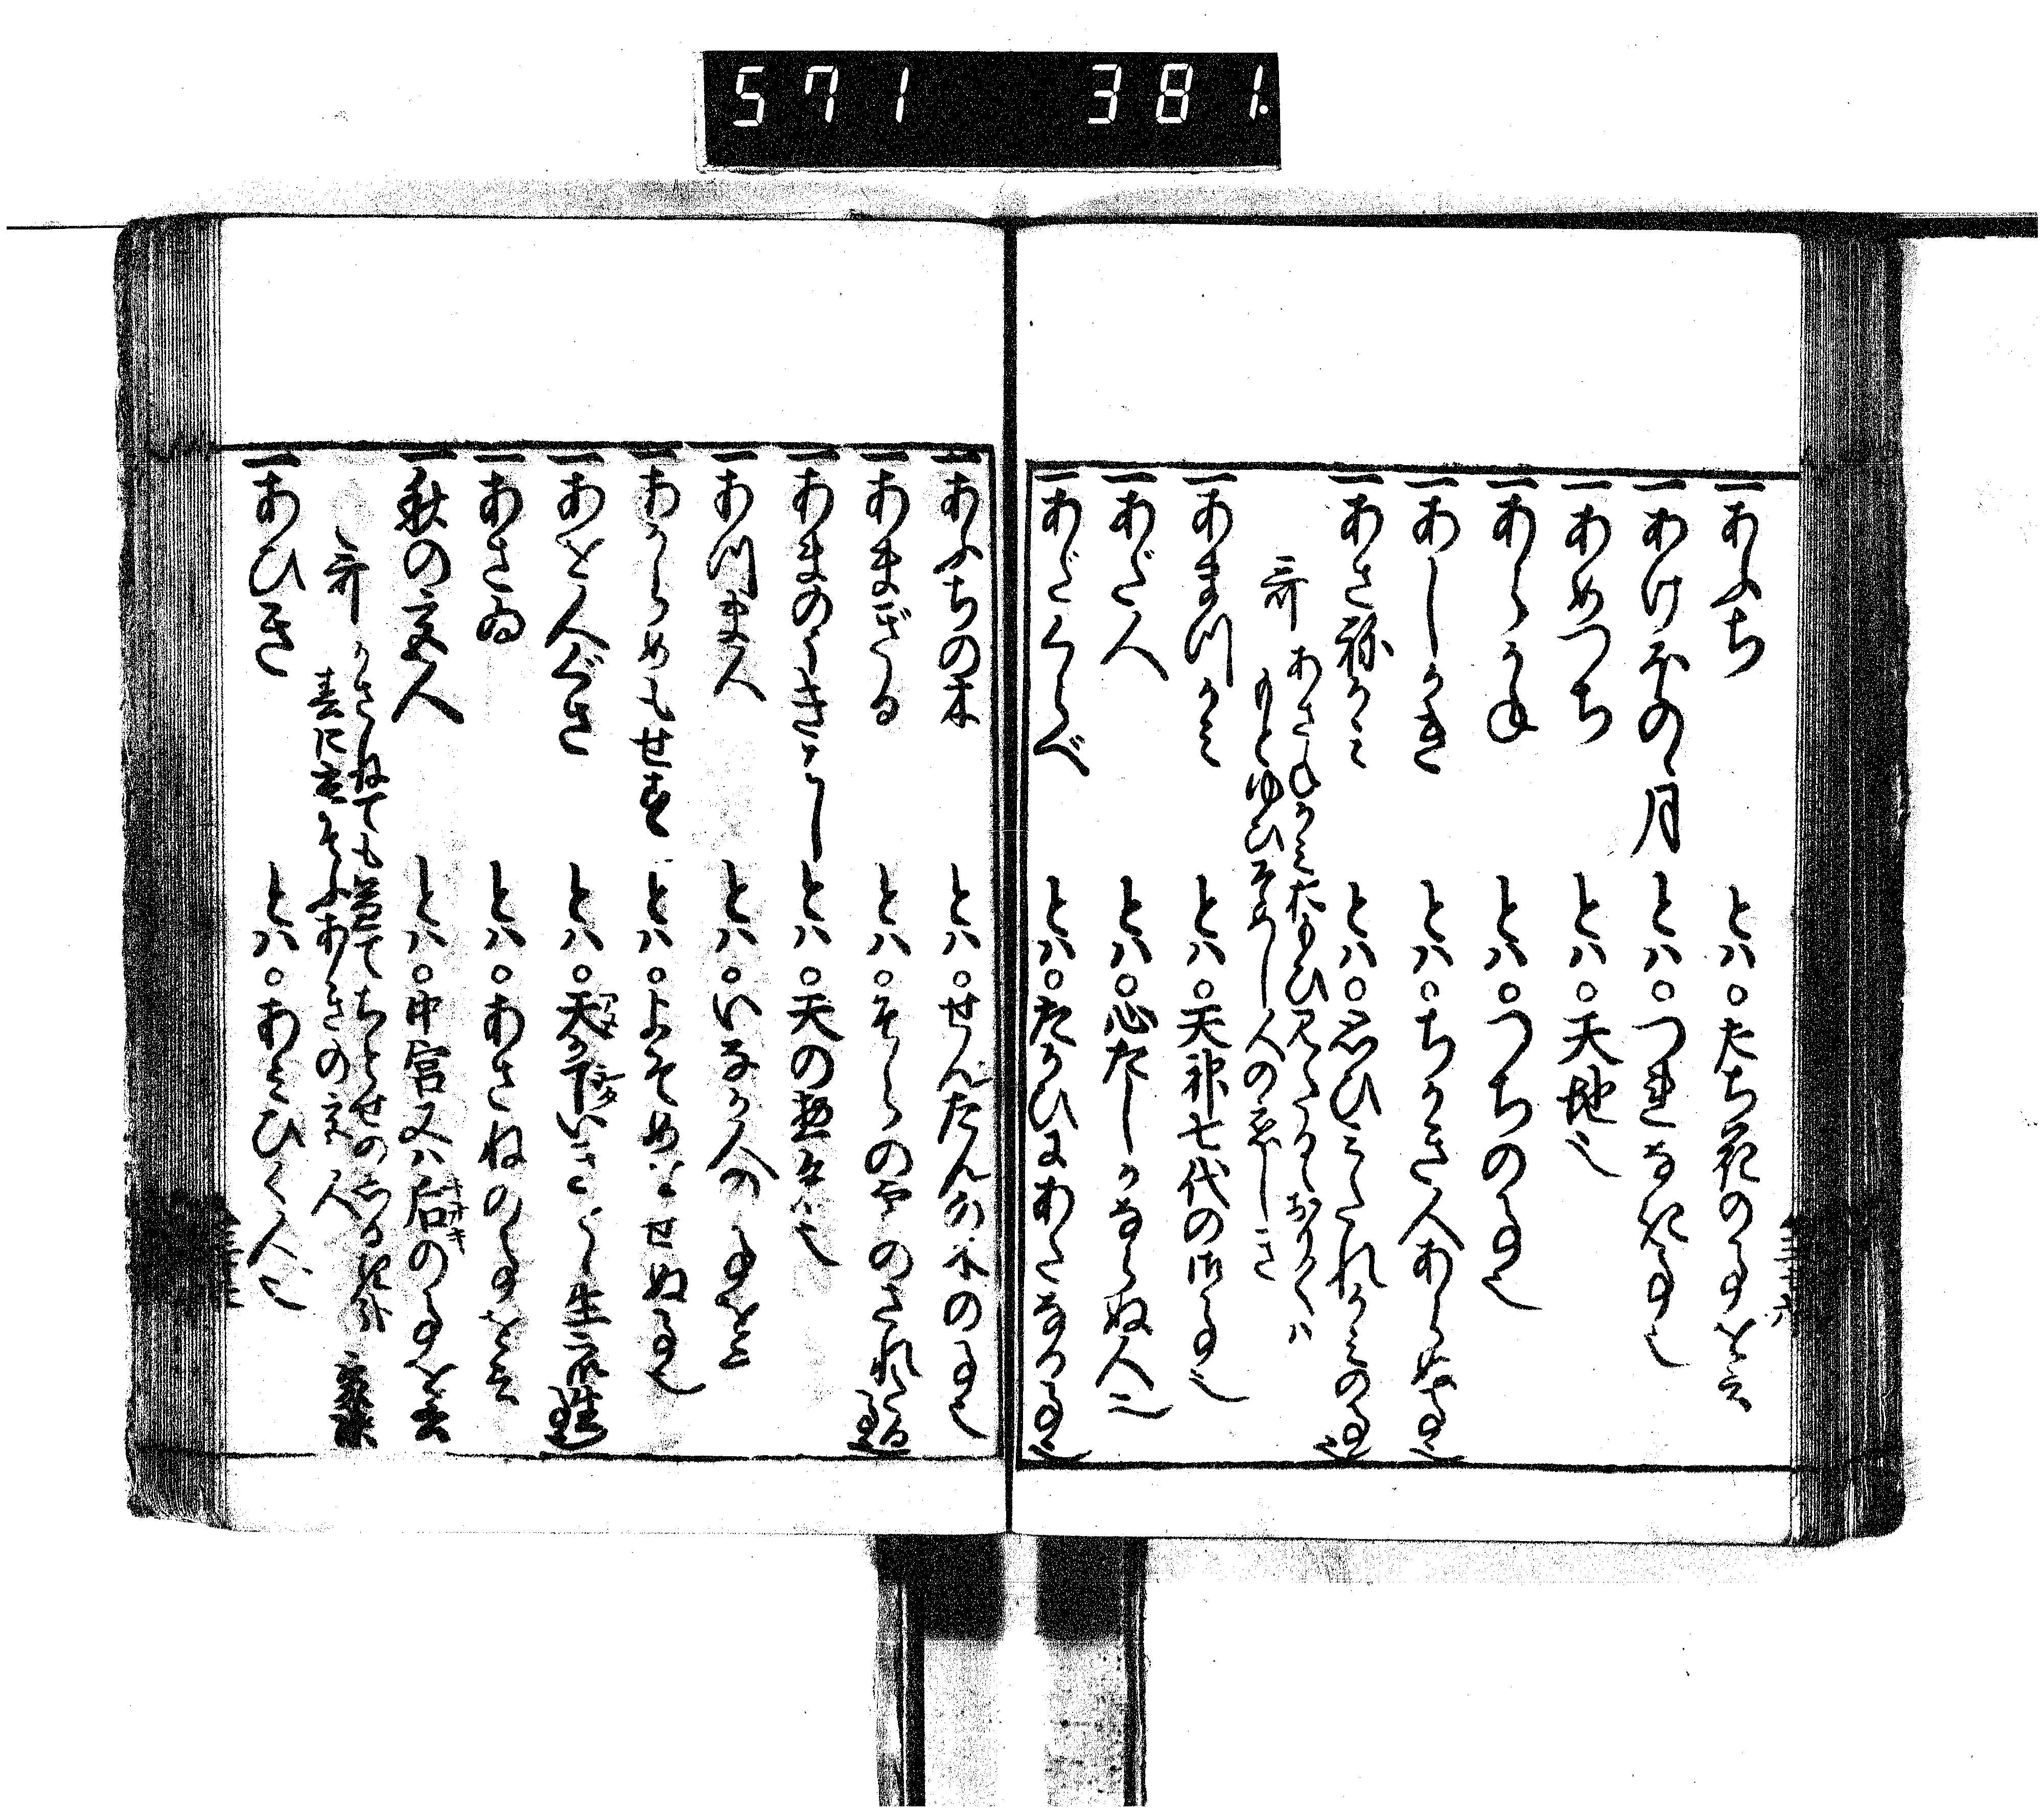 571 381
一あふち とハ○たち花の事を云
一あけぼのゝ月 とハ○つれなき事也
一あめつち とハ○天地也
一あらかね とハ○つちの事也
一あしかき とハ○ちかき人あらぬ事也
一あさ祢かミ とハ○思ひミたれかミの事也
哥 あさねかミおもひみたれておかくハ
もとゆひそめし人のこひしき
一あま川かミ とハ○天神七代の御事也
一あだ人 とハ○心たしかならぬ人也
一あだくらべ とハ○たかひにあたなる事也
一あふちの木 とハ○せんだんの木の事也
一あまざかる とハ○そらのやのされたる事也
一あまのうきはし とハ○天の
一あ川ま人 とハ○いなか人の事を云
一あからめもせす とハ○よそめはせぬ事也
一あを人ぐさ とハ○天が下いきとし生
一あさゐ とハ○あさねの事を云
一秋の宮人 とハ○中宮又ハ后の事を云
哥 かさねても ちとせの
春に あふあきの宮人
一あひき とハ○あミひく人也